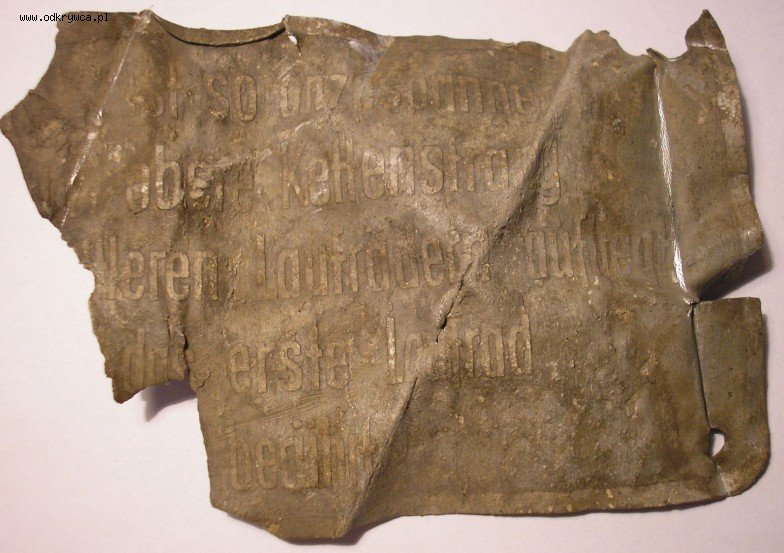 www.odkrywca.pl
ist so anzuspannen
obere Kettenstrang
leren Laufrädern aufliegt
das erste Laufrad
berührt